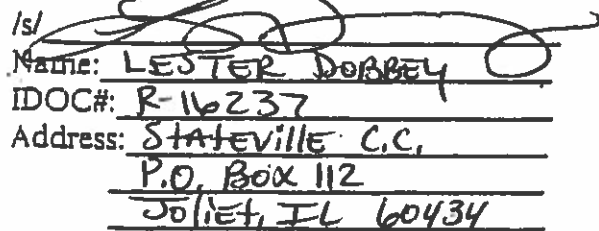 /s/
Name: LESTER DOBBEY
IDOC#: R-16237
Address: StAtEvillE C.C.
P.O. Box 112
JoliEt, IL 60434